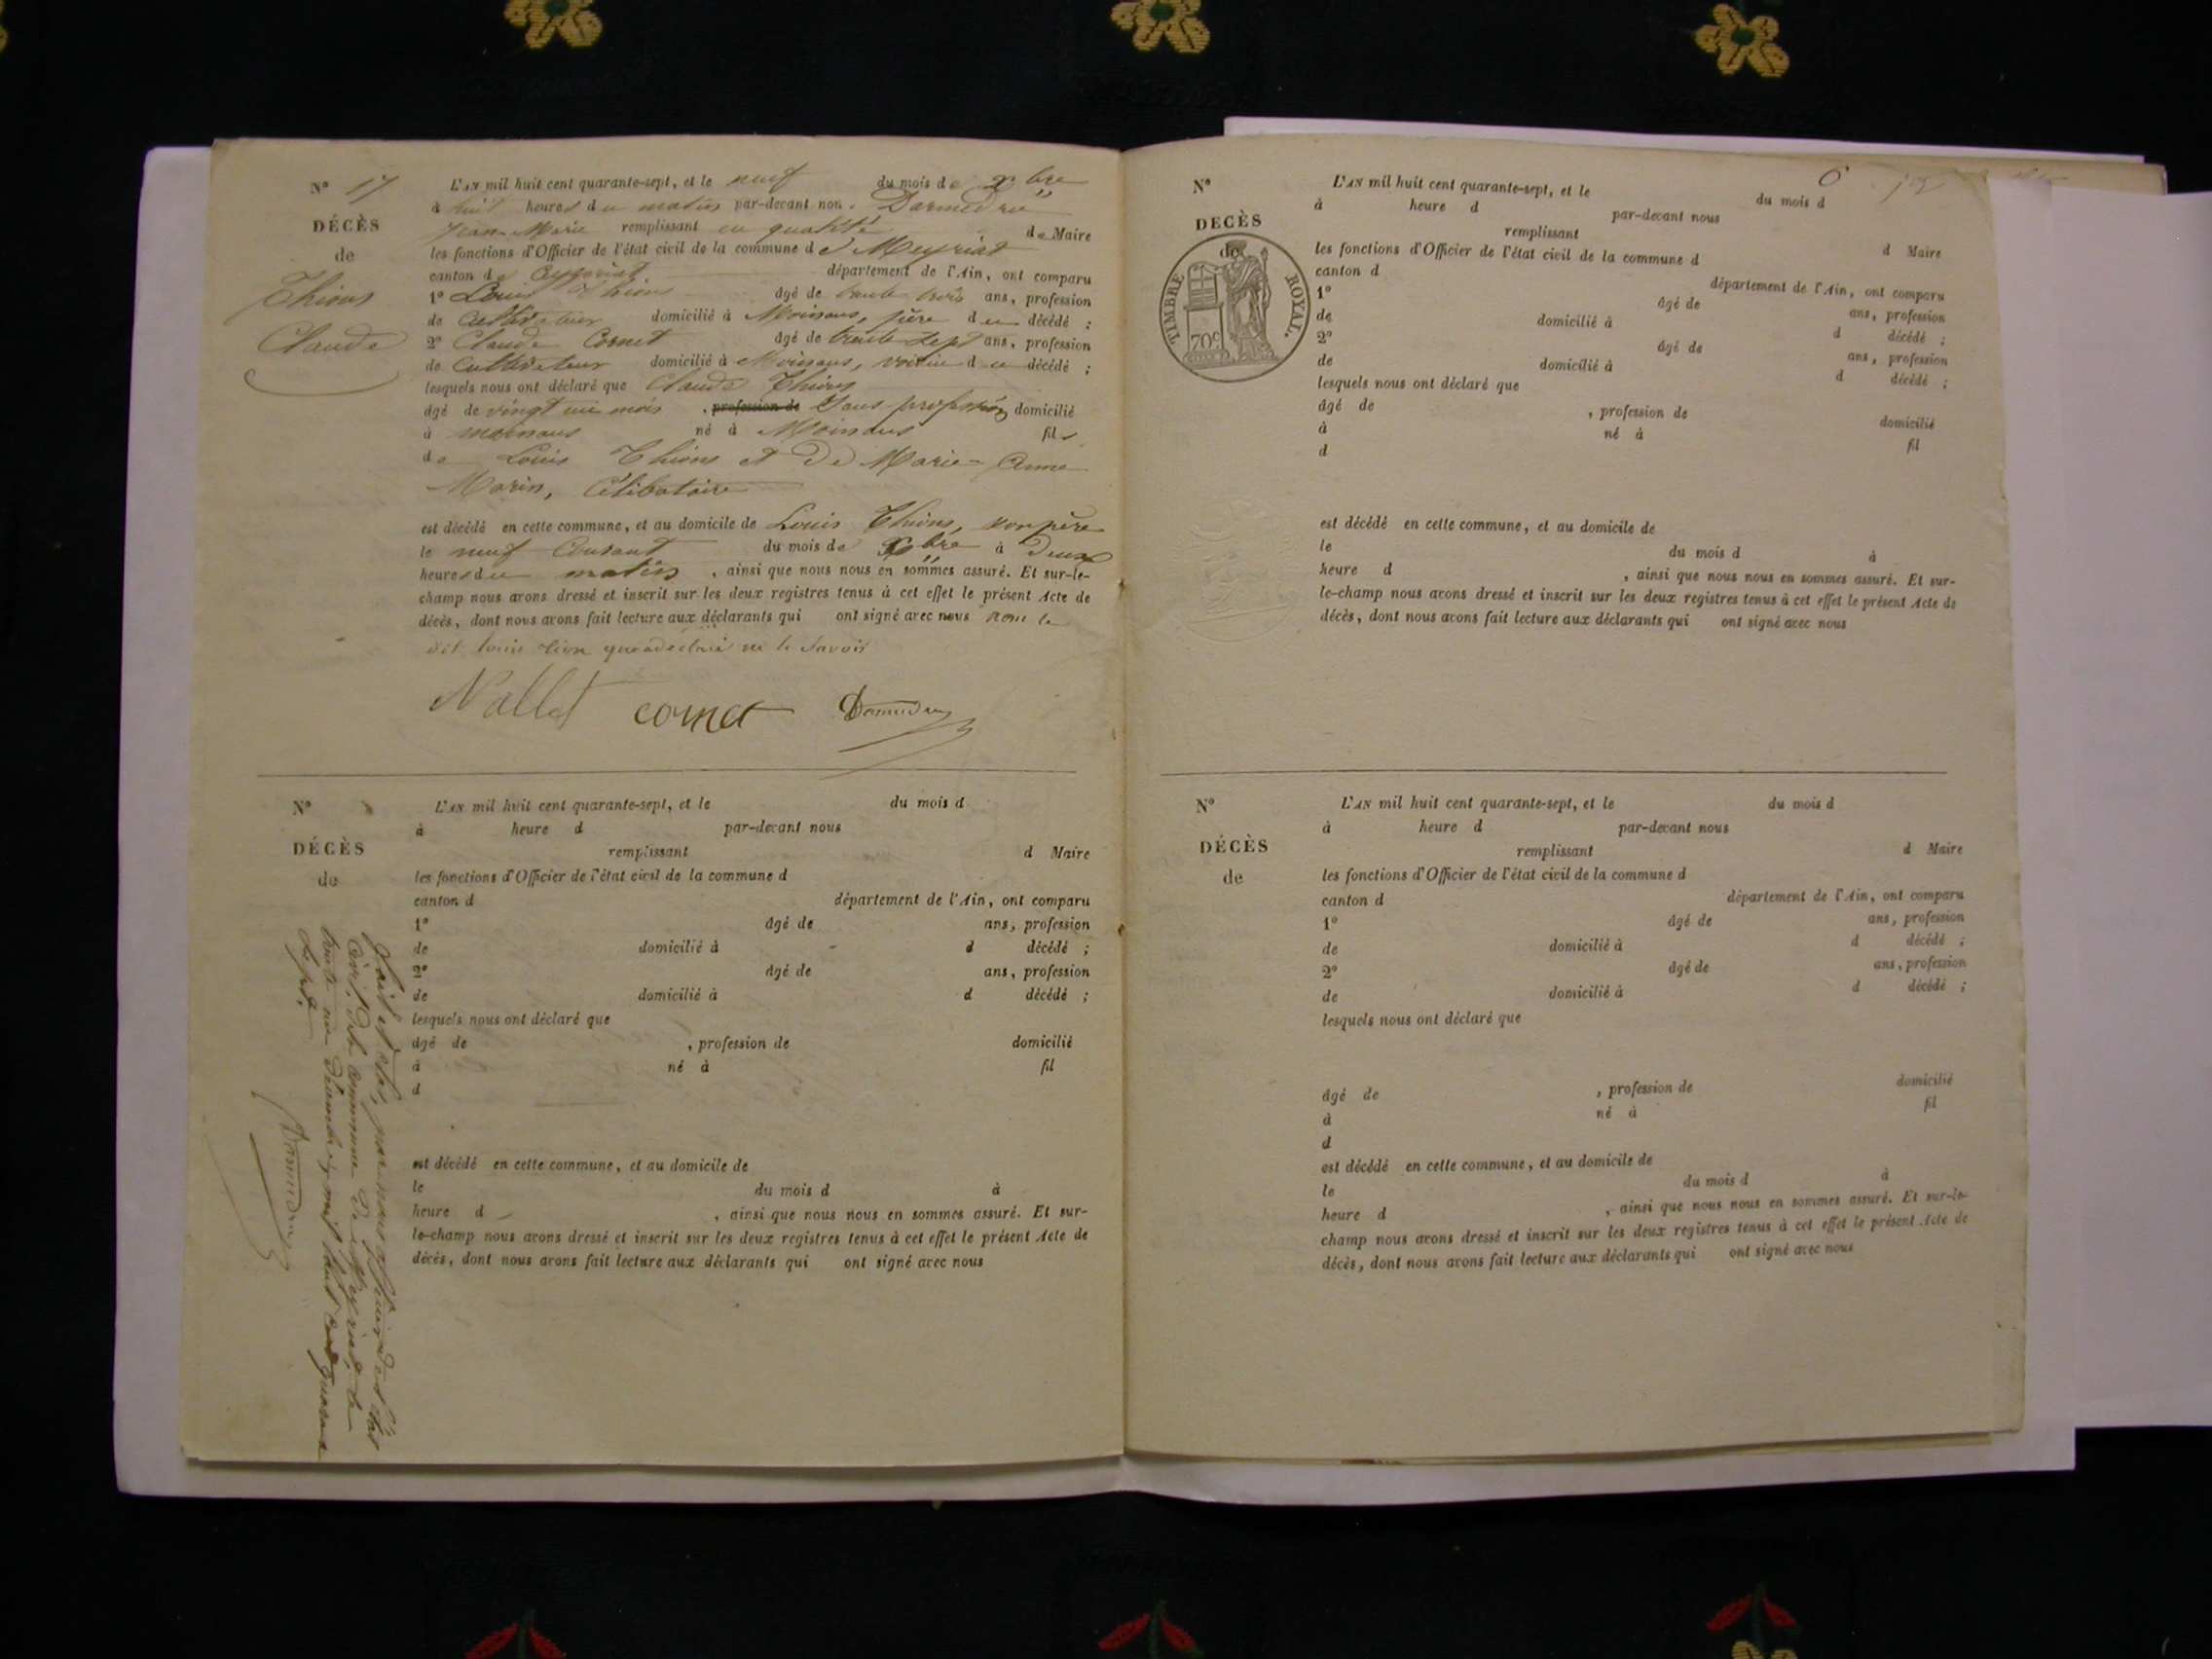 N° 17
DÉCÈS
de
Thions
Claude
L'AN mil huit cent quarante-sept, et le neuf du mois de Xbre
à huit heures du matin par-devant nous Darmedru
Jean Marie remplissant en qualité de Maire
les fonctions d'Officier de l'état civil de la commune de Meyriat
canton de Ceyzeriat département de l'Ain, ont comparu
1° Louis Thions âgé de trente trois ans, profession
de Cultivateur domicilié à Moinans, père du décédé ;
2° Claude Cornet âgé de trente sept ans, profession
de Cultivateur domicilié à Moinans, voisin du décédé ;
lesquels nous ont déclaré que Claude Thions
âgé de vingt un mois , profession de Sans profession domicilié
à moinans né à Moinans fils
de Louis Thions et de Marie-Anne
Morin, Célibataire
est décédé en cette commune, et au domicile de Louis Thions, son père
le neuf Courant du mois de Xbre à Deux
heures du matin , ainsi que nous nous en sommes assuré. Et sur-le-
champ nous avons dressé et inscrit sur les deux registres tenus à cet effet le présent Acte de
décès, dont nous avons fait lecture aux déclarants qui ont signé avec nous non le
dit louis qui a déclaré ne le savoir
Nallet cornet Darmedru
N°
DÉCÈS
de
L'AN mil huit cent quarante-sept, et le du mois d
à heure d par-devant nous
remplissant d Maire
les fonctions d'Officier de l'état civil de la commune d
canton d département de l'Ain, ont comparu
1° âgé de ans, profession
de domicilié à d décédé ;
2° âgé de ans, profession
de domicilié à d décédé ;
lesquels nous ont déclaré que
âgé de , profession de domicilié
à né à fil
d
est décédé en cette commune, et au domicile de
le du mois d à
heure d , ainsi que nous nous en sommes assuré. Et sur-
le-champ nous avons dressé et inscrit sur les deux registres tenus à cet effet le présent Acte de
décès, dont nous avons fait lecture aux déclarants qui ont signé avec nous
par nous officier de l'état
Civil de la Commune de Meyriat, le
trente un Décembre mil huit Cent quarante
Sept.
Darmedru
N°
DECÈS
de
TIMBRE ROYAL.
70c
6
L'AN mil huit cent quarante-sept, et le du mois d
à heure d par-devant nous
remplissant d Maire
les fonctions d'Officier de l'état civil de la commune d
canton d département de l'Ain, ont comparu
1° âgé de ans, profession
de domicilié à d décédé ;
2° âgé de ans, profession
de domicilié à d décédé ;
lesquels nous ont déclaré que
âgé de , profession de domicilié
à né à fil
d
est décédé en cette commune, et au domicile de
le du mois d à
heure d , ainsi que nous nous en sommes assuré. Et sur-
le-champ nous avons dressé et inscrit sur les deux registres tenus à cet effet le présent Acte de
décès, dont nous avons fait lecture aux déclarants qui ont signé avec nous
N°
DÉCÈS
de
L'AN mil huit cent quarante-sept, et le du mois d
à heure d par-devant nous
remplissant d Maire
les fonctions d'Officier de l'état civil de la commune d
canton d département de l'Ain, ont comparu
1° âgé de ans, profession
de domicilié à d décédé ;
2° âgé de ans, profession
de domicilié à d décédé ;
lesquels nous ont déclaré que
âgé de , profession de domicilié
à né à fil
d
est décédé en cette commune, et au domicile de
le du mois d à
heure d , ainsi que nous nous en sommes assuré. Et sur-le-
champ nous avons dressé et inscrit sur les deux registres tenus à cet effet le présent Acte de
décès, dont nous avons fait lecture aux déclarants qui ont signé avec nous